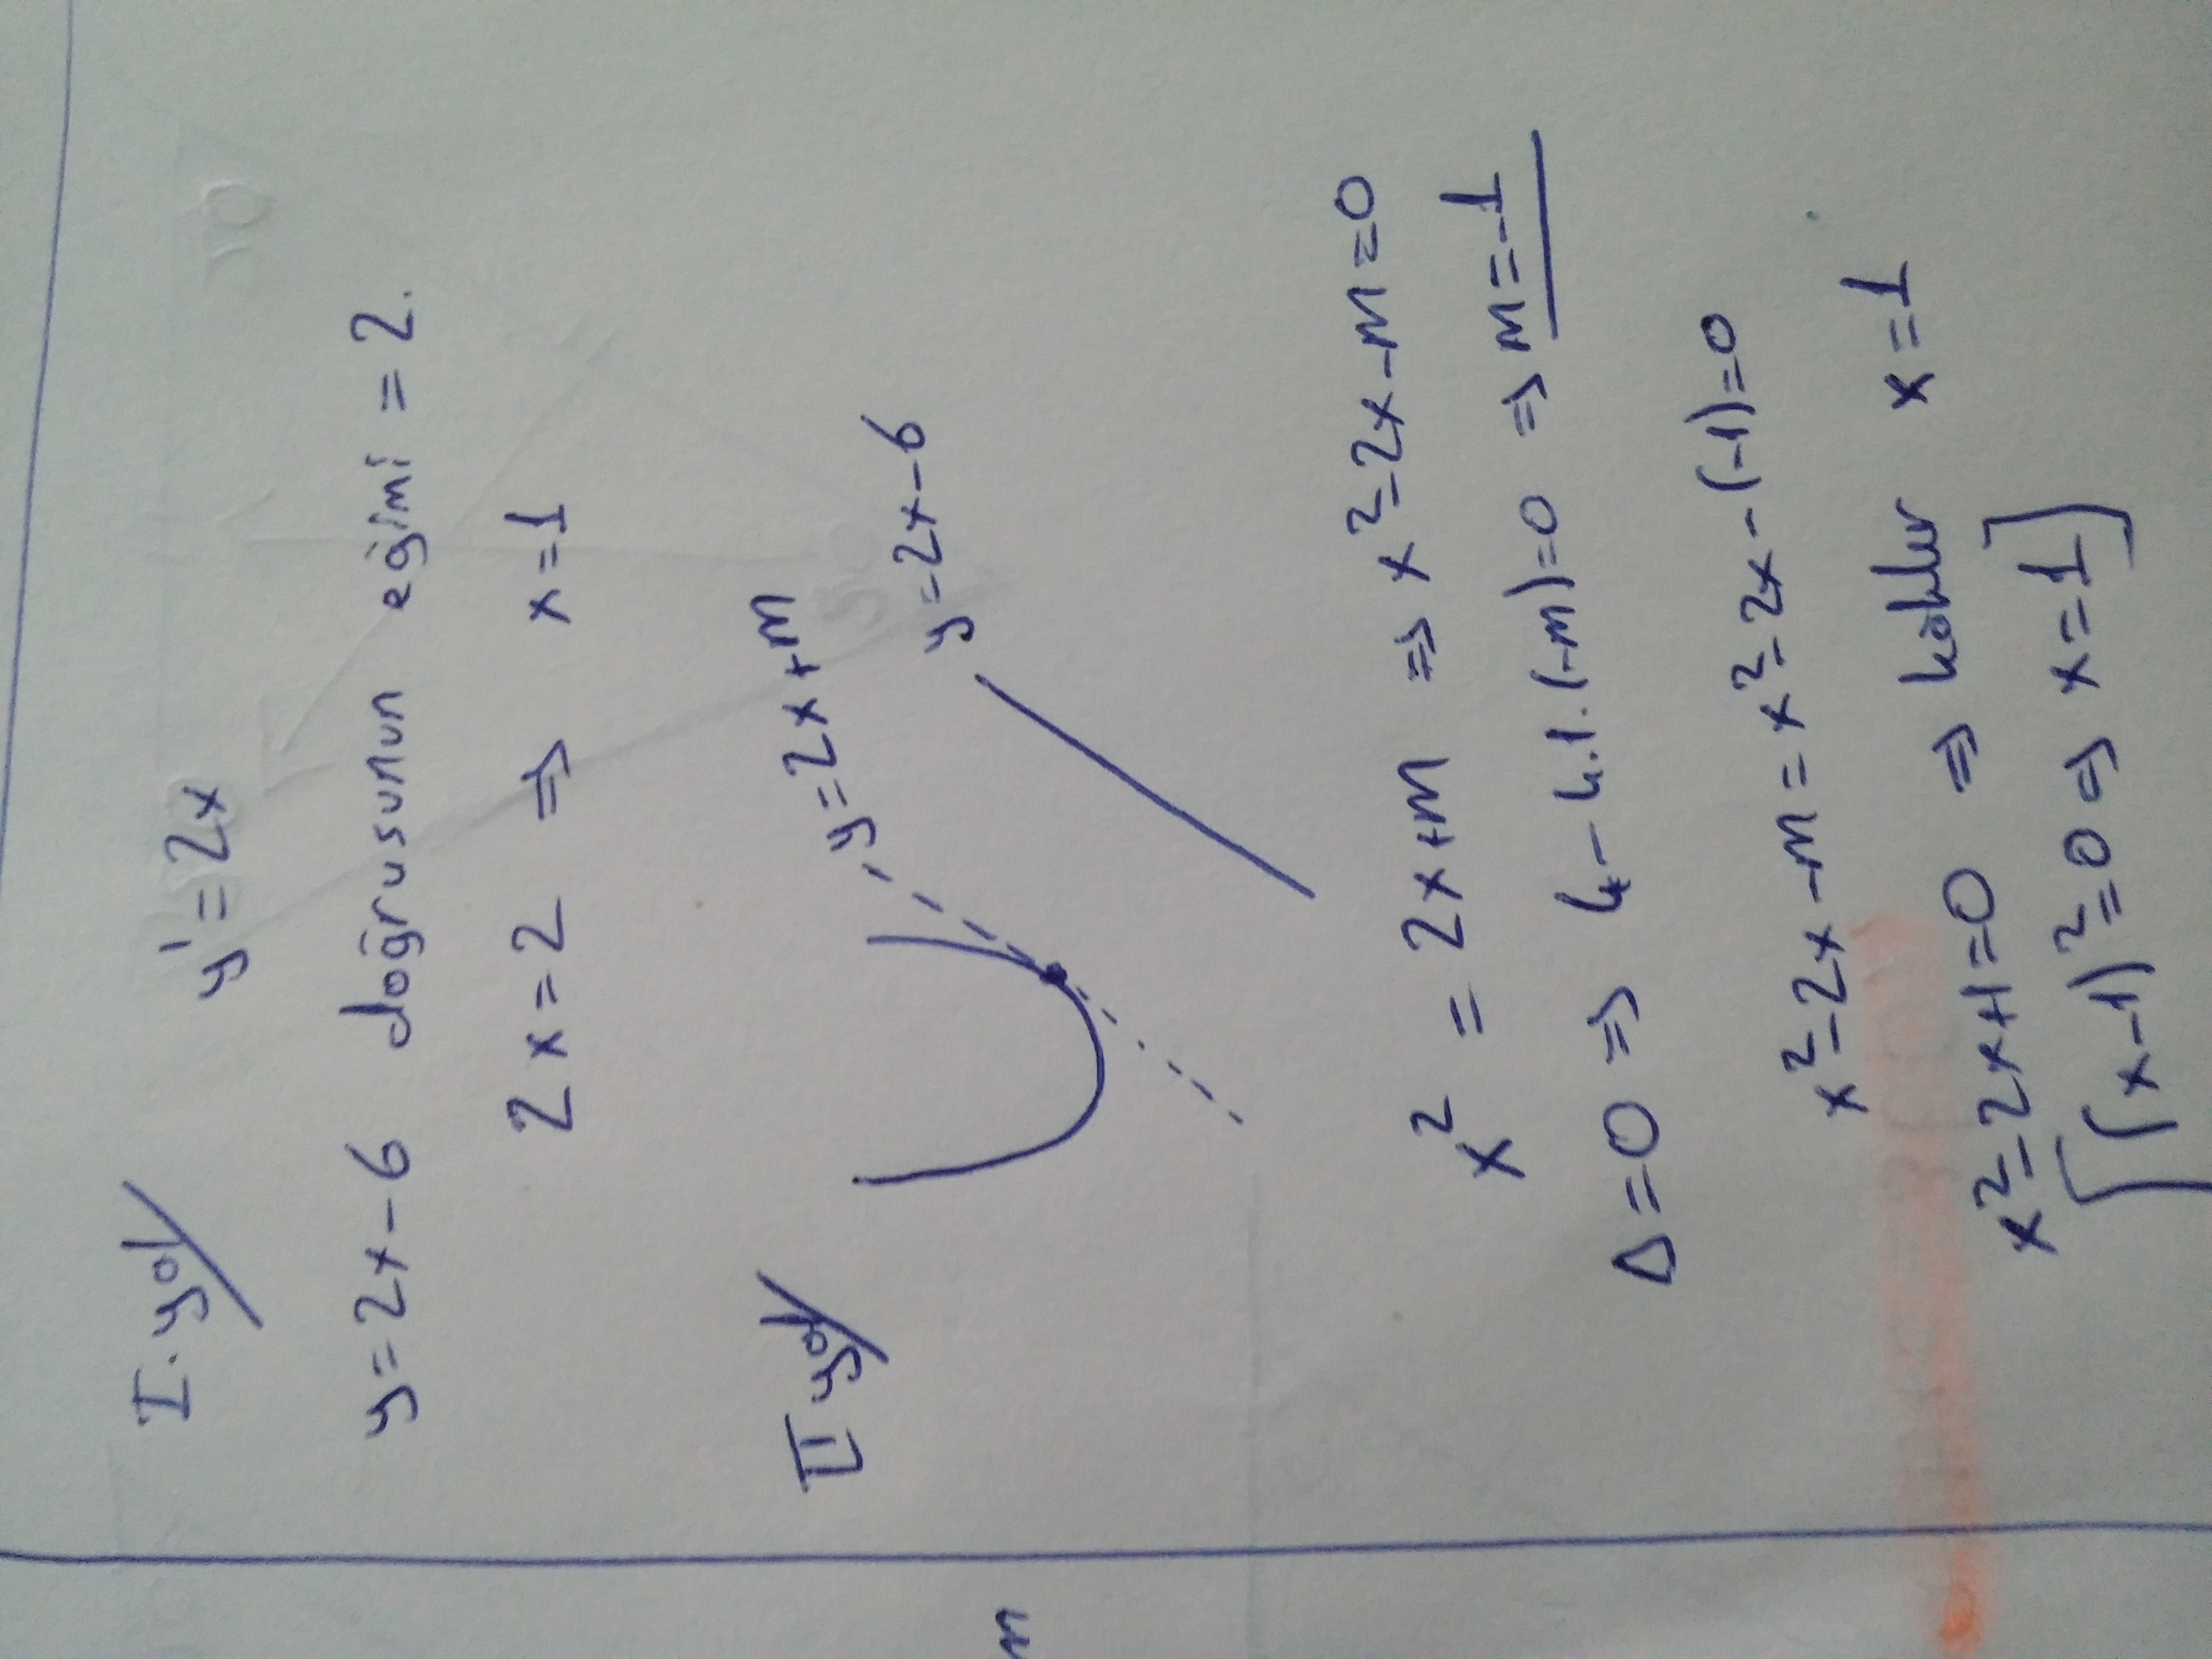 I. yol
y'=2x
y=2x-6 doğrusunun eğimi = 2.
2x=2 ⇒ x=1
II yol
y=2x+m
y=2x-6
x²=2x+m ⇒ x²-2x-m=0
Δ=0 ⇒ 4-4.1.(-m)=0 ⇒ m=-1
x²-2x-m=x²-2x-(-1)=0
x²-2x+1=0 ⇒ kökler x=1
[(x-1)²=0 ⇒ x=1]
m